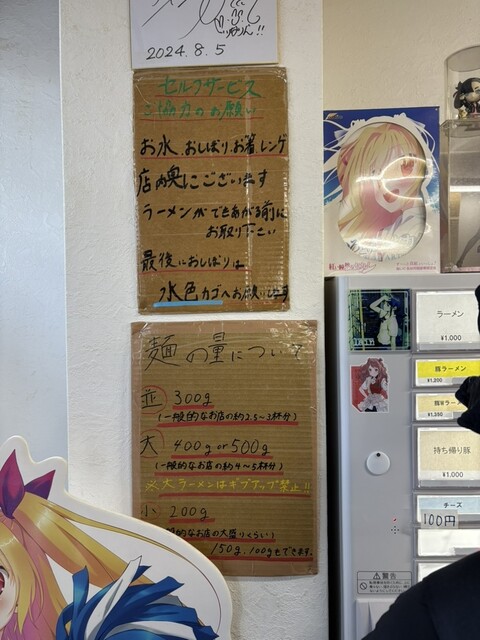 2024.8.5
セルフサービス
ご協力のお願い
お水、おしぼり、お箸、レンゲ
店内奥にございます
ラーメンができあがる前に
お取り下さい
最後におしぼりは
水色カゴへお願いします
麺の量について
並 300g
(一般的なお店の約2.5~3杯分)
大 400g or 500g
(一般的なお店の約4~5杯分)
※大ラーメンはギブアップ禁止!!
小 200g
的なお店の大盛りくらい)
150g、100gもできます。
ラーメン
¥1,000
豚ラーメン
¥1,200
¥1,350
持ち帰り豚
¥1,000
チーズ
100円
警告